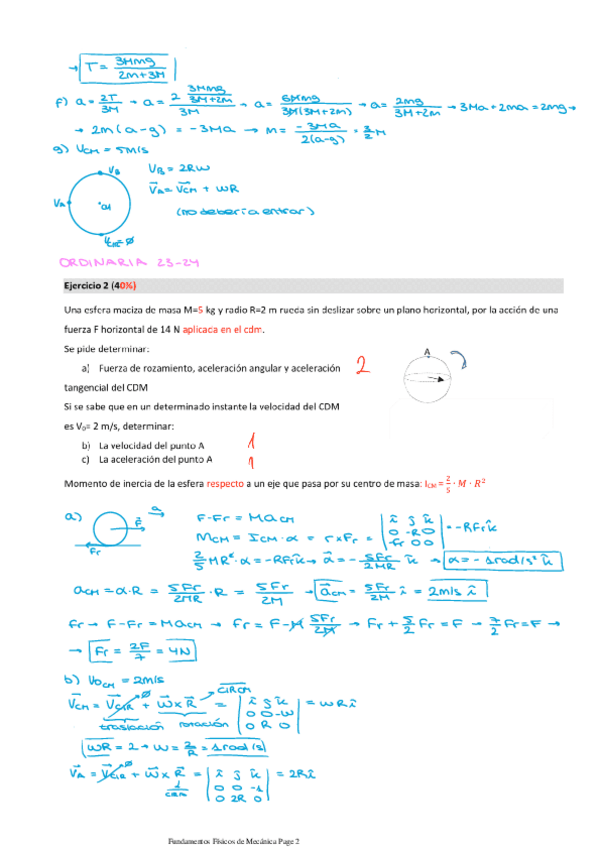 → T = 3Mmg / 2m+3M
f) a = 2T/3M → a = 2 (3Mmg / 3M+2m) / 3M → a = 6Mmg / 3M(3M+2m) → a = 2mg / 3M+2m → 3Ma + 2ma = 2mg →
→ 2m(a-g) = -3Ma → m = -3Ma / 2(a-g) = 3/2 M
g) VCM = 5M/s
VB = 2RW
VA = VCM + WR
(no debería entrar)
VB
VA
CM
ORDINARIA 23-24
Ejercicio 2 (40%)
Una esfera maciza de masa M=5 kg y radio R=2 m rueda sin deslizar sobre un plano horizontal, por la acción de una
fuerza F horizontal de 14 N aplicada en el cdm.
Se pide determinar:
a) Fuerza de rozamiento, aceleración angular y aceleración
tangencial del CDM
2
A
Si se sabe que en un determinado instante la velocidad del CDM
es V0= 2 m/s, determinar:
b) La velocidad del punto A 1
c) La aceleración del punto A 1
Momento de inercia de la esfera respecto a un eje que pasa por su centro de masa: ICM = 2/5 · M · R²
a)
a
F
Fr
F - Fr = MaCM
MCM = ICM · α = r x Fr = | i j k | 0 -R 0 | -Fr 0 0 | = -RFr k
2/5 MR² · α = -RFr k → α = - 5Fr/2MR k → α = -1 rad/s² k
aCM = α · R = 5Fr/2MR · R = 5Fr/2M → aCM = 5Fr/2M i = 2m/s i
Fr → F - Fr = MaCM → Fr = F - M 5Fr/2M → Fr + 5/2 Fr = F → 7/2 Fr = F →
→ Fr = 2F/7 = 4N
b) V0CM = 2m/s
CIRCM
VCM = VCIR + W x R = | i j k | 0 0 -W | 0 R 0 | = WR i
traslación rotación
WR = 2 → W = 2/R = 1 rad/s
VA = VCIR + W x R = | i j k | 0 0 -1 | 0 2R 0 | = 2R i
Fundamentos Físicos de Mecánica Page 2